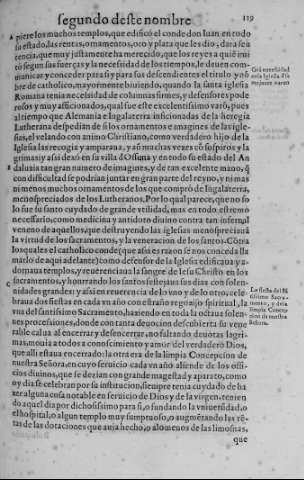 segundo deste nombre 119
A piere los muchos templos, que edificò el conde don Iuan en todo
su estado, las rentas, ornamentos, oro y plata que les dio, dara sen
tencia, que muy justamente ha merecido, que los reyes a quié imi
tò segun sus fuerças y la necessidad de los tiempos, le deuen com-
municar y conceder para si y para sus descendientes el titulo y nõ
bre de catholico, mayormente biuiendo, quando la santa iglesia
Romana tenia necessidad de columnas firmes, y defensores pode
rosos y muy afficionados, qual fue este excelentissimo varõ, pues
al tiempo que Alemania e Ingalaterra inficionadas de la heregia
Lutherana despedian de si los ornamentos e imagines de las igle-
sias, el velando con animo Christiano, como verdadero hijo de la
Iglesia las recogia y amparaua, y aſsi muchas vezes cõ sospiros y la
grimas
y assi dexò en su villa d̃ Ossuna y en todo su estado del An
B daluzia tan gran numero de imagines, y de tan excelente mano, q̃
con difficultad se podrian juntar en gran parte del reyno, y ni mas
ni menos muchos ornamentos de los que comprò de Ingalaterra,
menospreciados de los Lutheranos. Por lo qual parece, que no so
lo fue su santo cuydado de grande vtilidad, mas en todo estremo
necessario, como medicina y antidoto diuino contra tan infernal
veneno de aquellos, que destruyendo las iglesias menospreciauã
la virtud de los sacramentos, y la veneracion de los santos. Cõtra
los quales el catholico conde (que assi es razon se nos conceda lla
marlo de aqui adelante) como defensor de la Iglesia edificaua y a-
dornaua templos, y reuerenciaua la sangre de Iesu Christo en los
C sacramentos, y honrrando los santos festejaua sus dias con solen-
nidades grandes: y assi en reuerencia de lo vno y de lo otro, se le
braua dos fiestas en cada vn año con estraño regozijo spiritual, la
vna del santissimo Sacramento, haziendo en toda la octaua solen-
nes processiones, donde con tanta deuocion descubierta su vene
rable cabeça al encerrar y desencerrar, no faltando deuotas lagri-
mas, mouia a todos a conocimiento y amor del verdadero Dios,
que alli estaua encerrado: la otra era de la limpia Concepcion de
nuestra Señora, en cuyo seruicio cada vn año allende de los offi-
cios diuinos, que se dezian con grande magestad y aparato, como
oy dia se celebran por su institucion, siempre tenia cuydado de ha
zer alguna cosa notable en seruicio de Dios y de la virgen, tenien
do aquel dia por dichosissimo para si, o fundando la vniuersidad, o
el hospital, o algun templo muy sumptuoso, o augmentando las rẽ-
tas de las dotaciones que auia hecho, o alomenos de las limosnas,
que
Grã necessidad
en la Iglesia
La fiesta del Sã
tissimo Sacra-
mento, y dela
limpia Concep-
cion de nuestra
Señora.